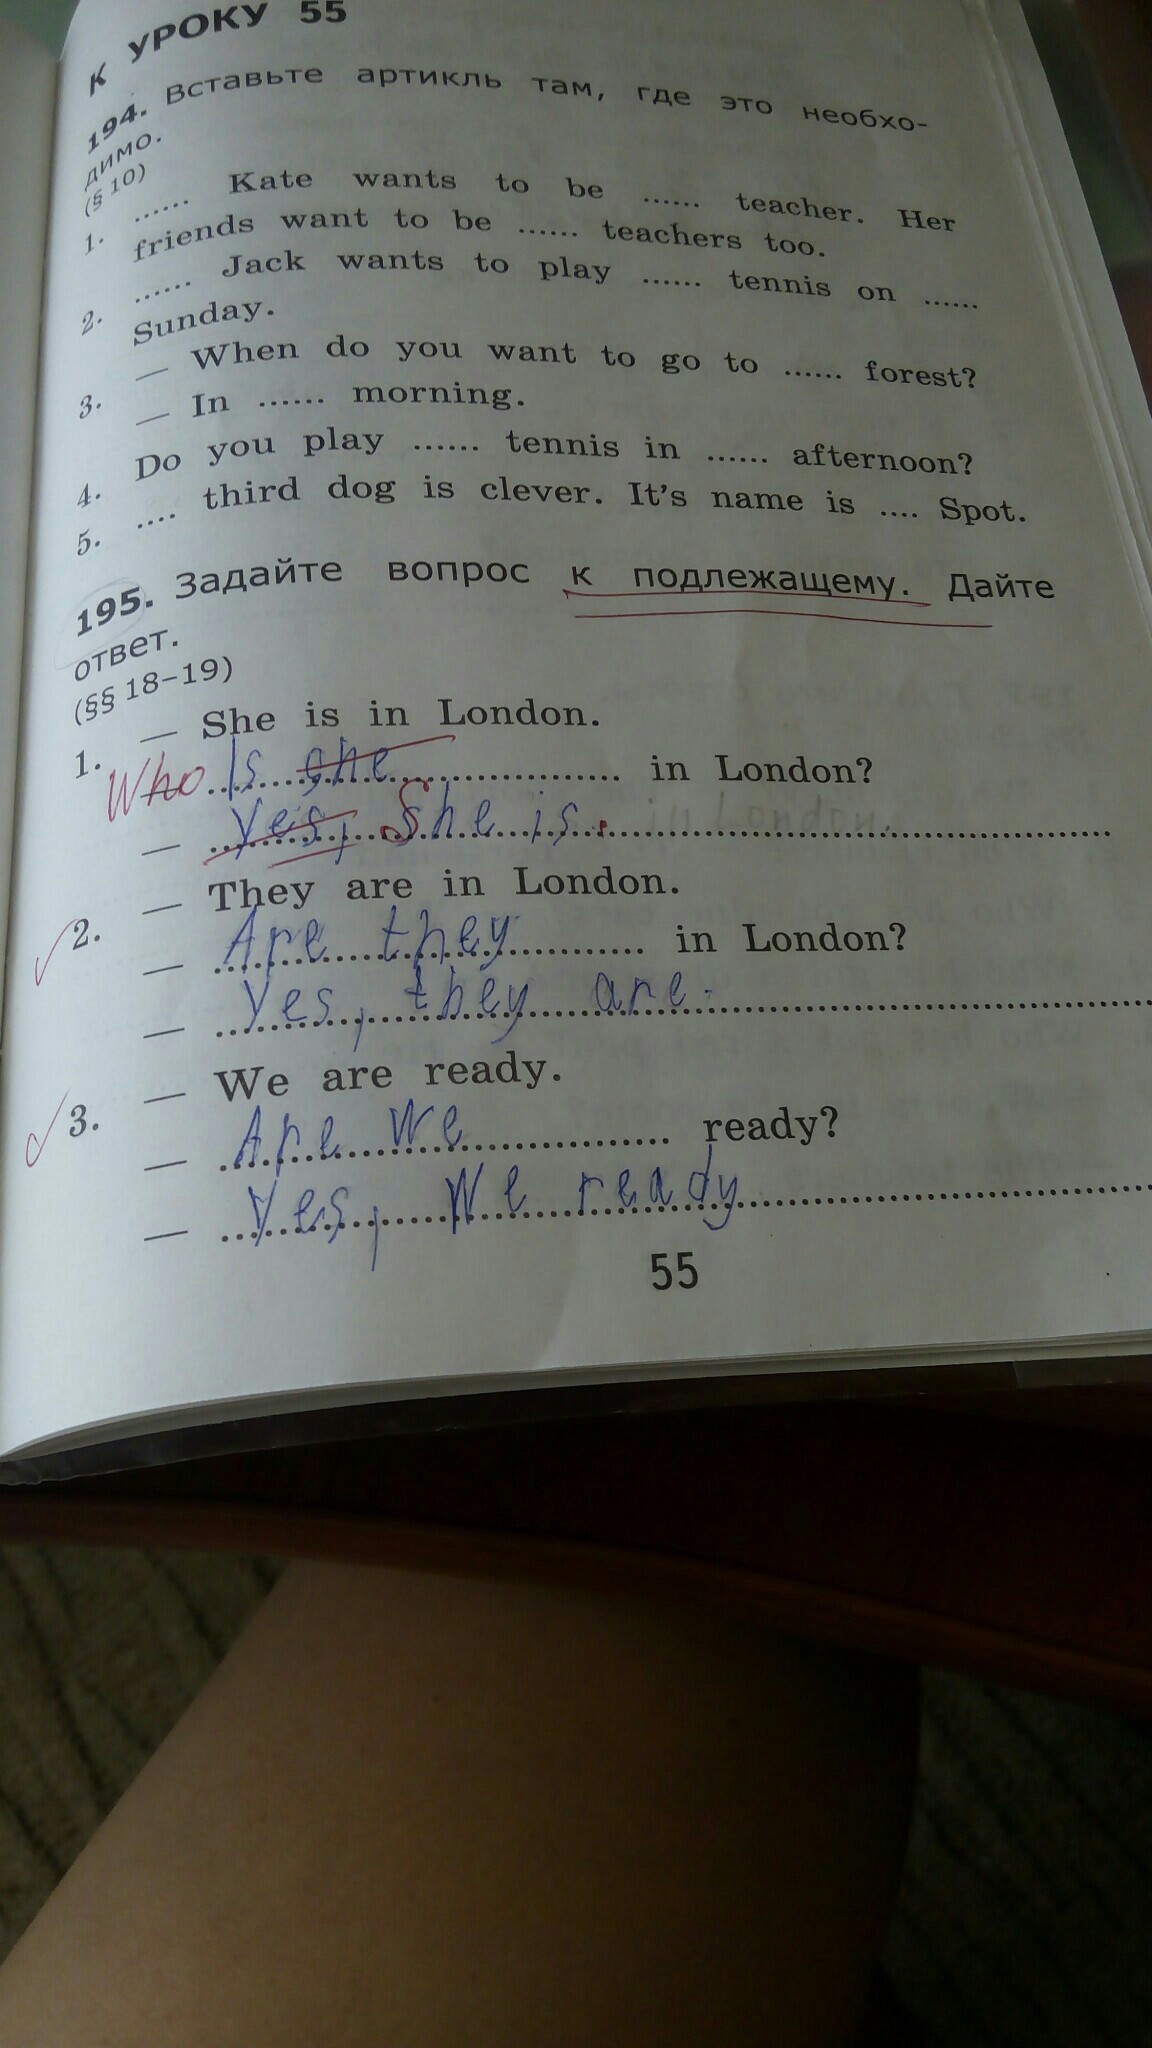 К УРОКУ 55
194. Вставьте артикль там, где это необхо-
димо.
(§ 10)
1. ...... Kate wants to be ...... teacher. Her
friends want to be ...... teachers too.
2. ...... Jack wants to play ...... tennis on ......
Sunday.
3. — When do you want to go to ...... forest?
— In ...... morning.
4. Do you play ...... tennis in ...... afternoon?
5. .... third dog is clever. It's name is .... Spot.
195. Задайте вопрос к подлежащему. Дайте
ответ.
(§§ 18–19)
1. — She is in London.
Who Is she in London?
— Yes, She is. in London.
2. — They are in London.
— Are they in London?
— Yes, they are.
3. — We are ready.
— Are We ready?
— Yes, We ready
55